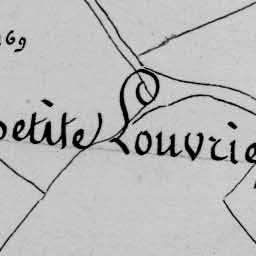 169
petite Louvrie